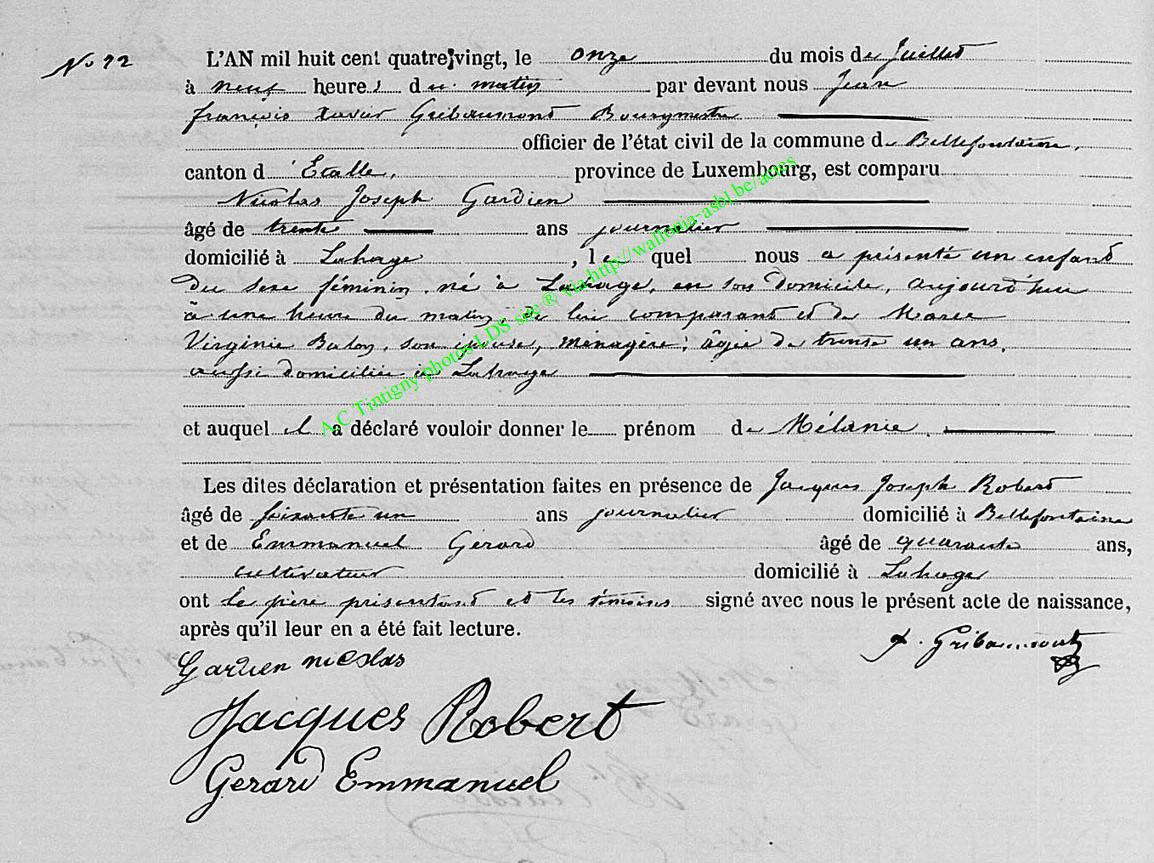 No 22 L'AN mil huit cent quatre-vingt, le onze du mois de Juillet
à neuf heures du matin par devant nous Jean
françois Xavier Gribaumont Bourgmestre
officier de l'état civil de la commune de Bellefontaine,
canton d'Etalle, province de Luxembourg, est comparu
Nicolas Joseph Gardien
âgé de trente ans journalier
domicilié à Lahage, lequel nous a présenté un enfant
du sexe féminin, né à Lahage, en son domicile, aujourd'hui
à une heure du matin, de lui comparant et de Marie
Virginie Balon, son épouse, ménagère, âgée de trente un ans,
aussi domiciliée à Lahage
et auquel il a déclaré vouloir donner le prénom de Mélanie.
Les dites déclaration et présentation faites en présence de Jacques Joseph Robert
âgé de soixante un ans journalier domicilié à Bellefontaine
et de Emmanuel Gérard âgé de quarante ans,
cultivateur domicilié à Lahage
ont le père présentant et les témoins signé avec nous le présent acte de naissance,
après qu'il leur en a été fait lecture.
Gardien nicolas
Jacques Robert
Gerard Emmanuel
A.C Tintigny photos LDS sdc® via http://wallonia-asbl.be/actes